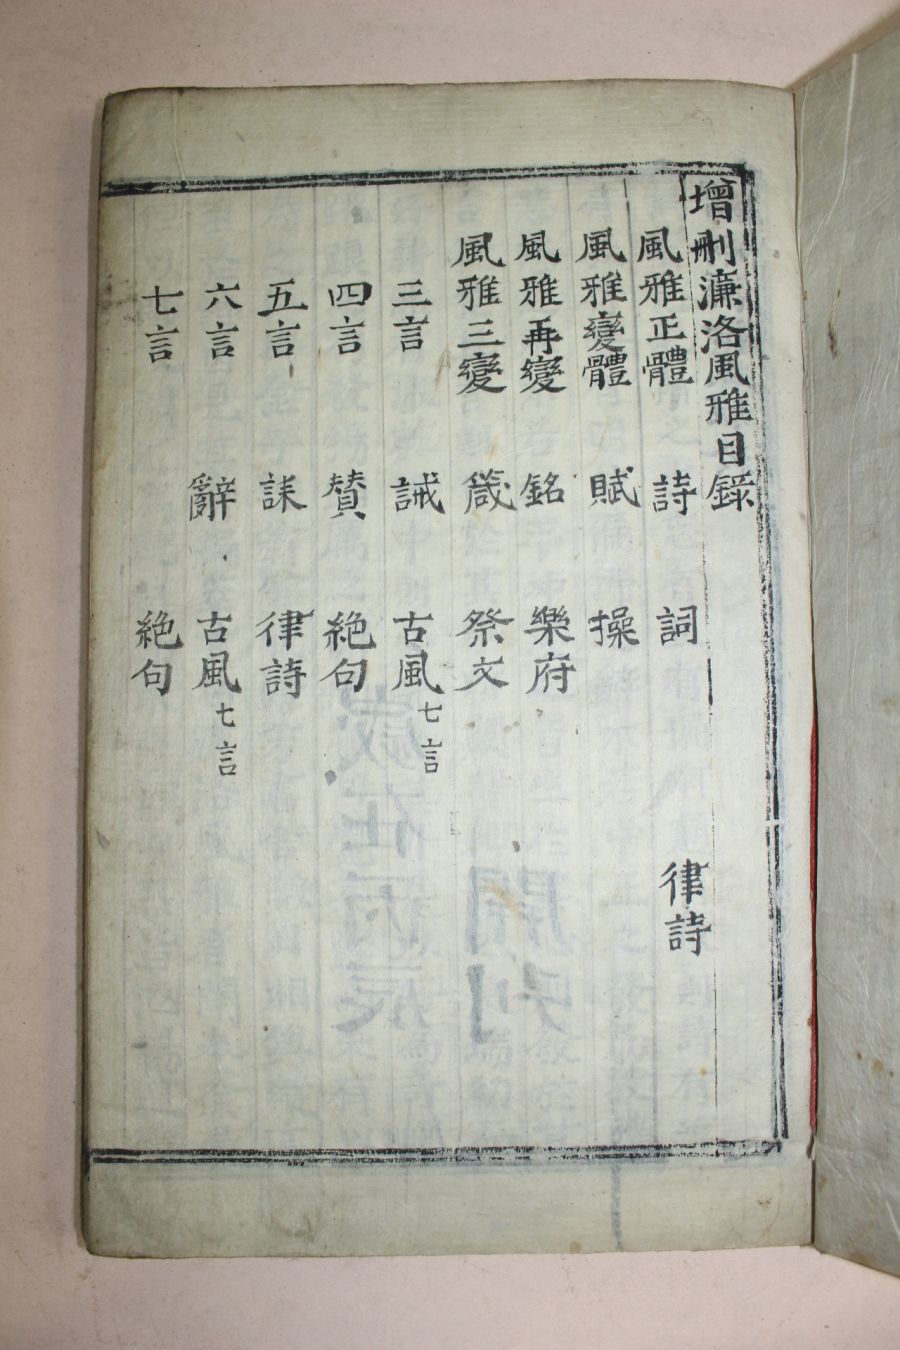 增刪濂洛風雅目錄
風雅正體 詩 詞 律詩
風雅變體 賦 操
風雅再變 銘 樂府
風雅三變 箴 祭文
三言 誡 古風七言
四言 贊 絶句
五言 誄 律詩
六言 辭 古風七言
七言 絶句